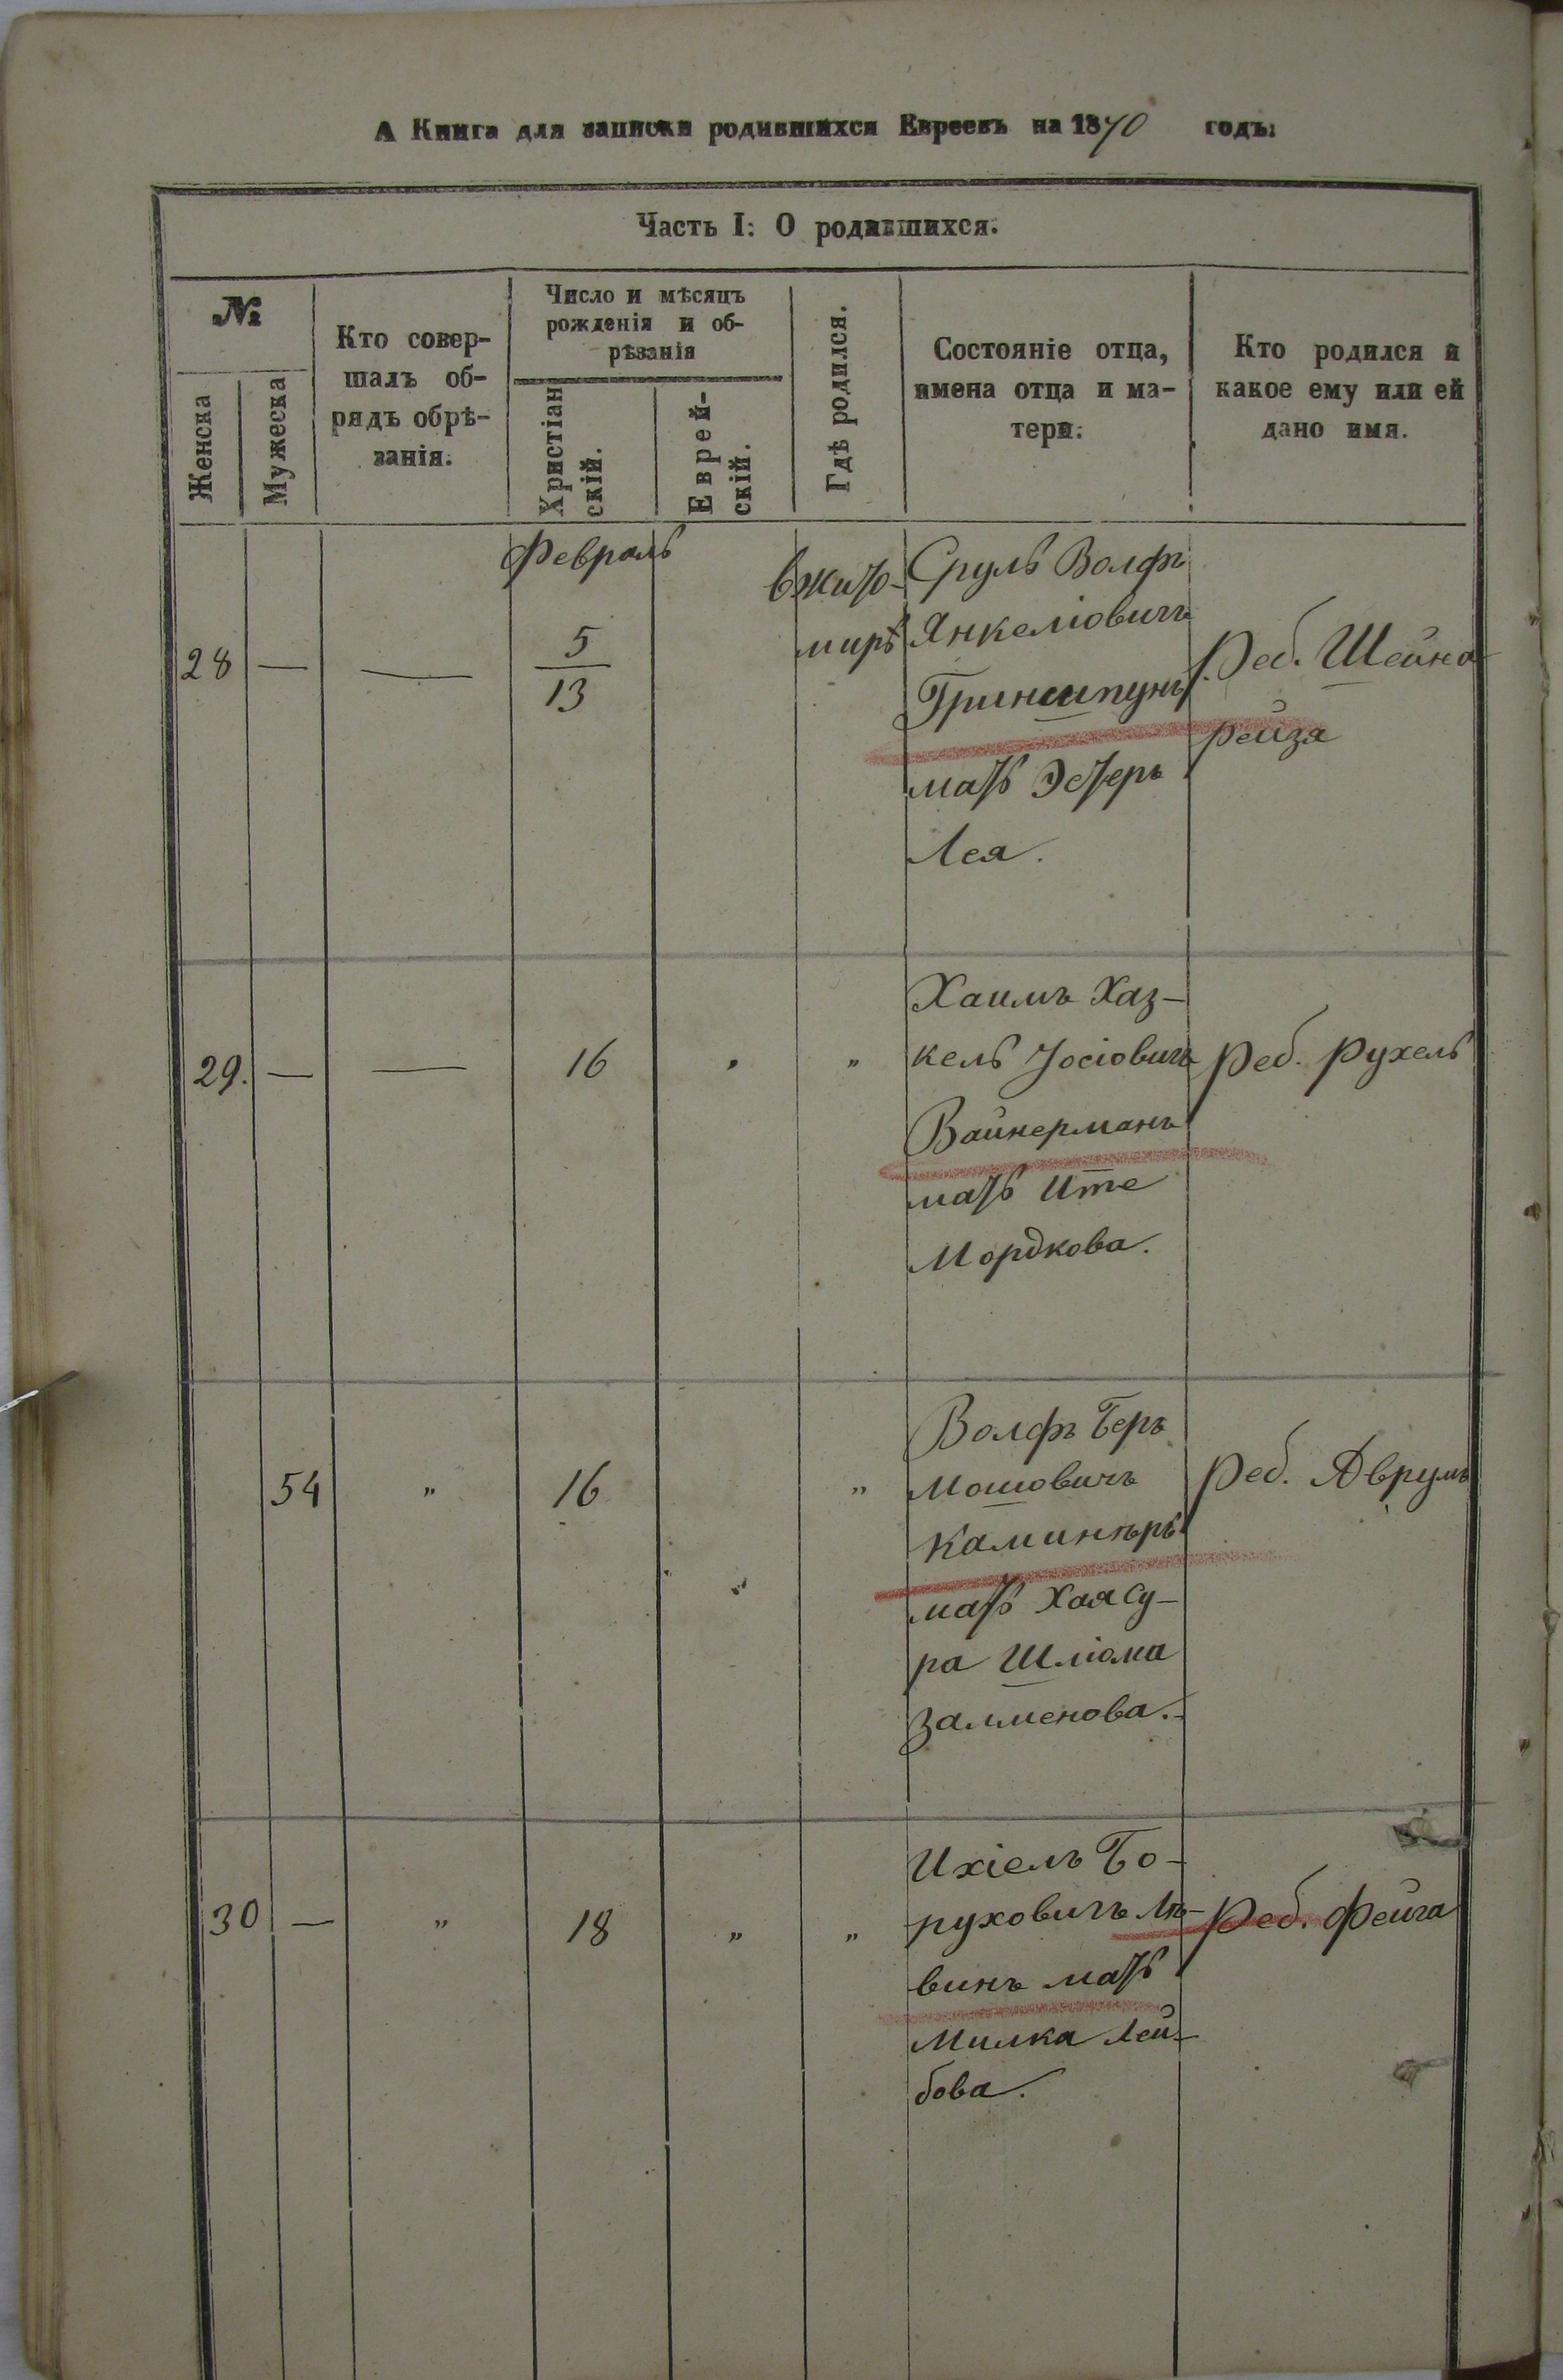 А Книга для записки родившихся Евреевъ на 1870 годъ:
Часть I: О родившихся.
№
Женска
Мужеска
Кто совер-
шалъ об-
рядъ обрѣ-
занія.
Число и мѣсяцъ
рожденія и об-
рѣзанія
Христіан
скій.
Еврей-
скій.
Гдѣ родился.
Состояніе отца,
имена отца и ма-
тери.
Кто родился и
какое ему или ей
дано имя.
Февраль
28 — — 5
13
вжито-
мирѣ
Сруль Волфъ
Янкеліовичъ
Гриншпунъ
мать Эстеръ
Лея.
Реб. Шейна
рейза
29. — — 16 " "
Хаимъ Хаз-
кель Іосіовичъ
Вайнерманъ
мать Ите
Мордкова.
Реб. Рухель
54 " 16 " "
Волфъ Беръ
Мошовичъ
Каминѣръ
мать Хая Су-
ра Шліома
Залменова.
Реб. Аврумъ
30 — " 18 " "
Ихіелъ Бо-
руховичъ Лѣ-
винъ мать
Милка Лей-
бова.
Реб. Фейга